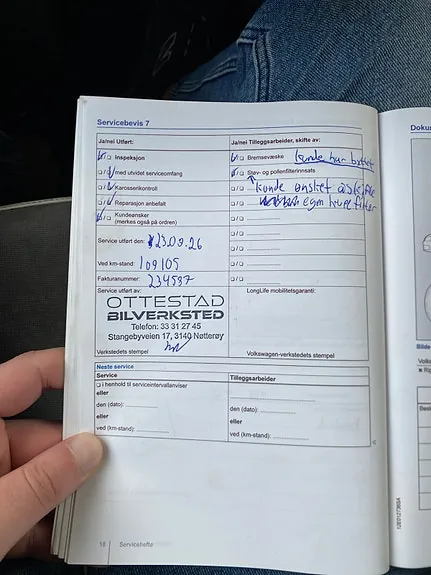 Servicebevis 7
Ja/nei Utført:
Ja/nei Tilleggsarbeider, skifte av:
Inspeksjon
Bremsevæske kunde har byttet
med utvidet serviceomfang
Støv- og pollenfilterinnsats
Karosserikontroll
kunde ønsket å skifte
Reparasjon anbefalt
egen kupefilter
Kundeønsker
(merkes også på ordren)
Service utført den: 23.09.26
Ved km-stand: 109105
Fakturanummer: 234587
Service utført av:
LongLife mobilitetsgaranti:
OTTESTAD
BILVERKSTED
Telefon: 33 31 27 45
Stangebyveien 17, 3140 Nøtterøy
Verkstedets stempel
Volkswagen-verkstedets stempel
Neste service
Service
Tilleggsarbeider
i henhold til serviceintervallanviser
eller
den (dato):
den (dato):
eller
eller
ved (km-stand):
ved (km-stand):
18 Servicehefte
Dokum
Bilde